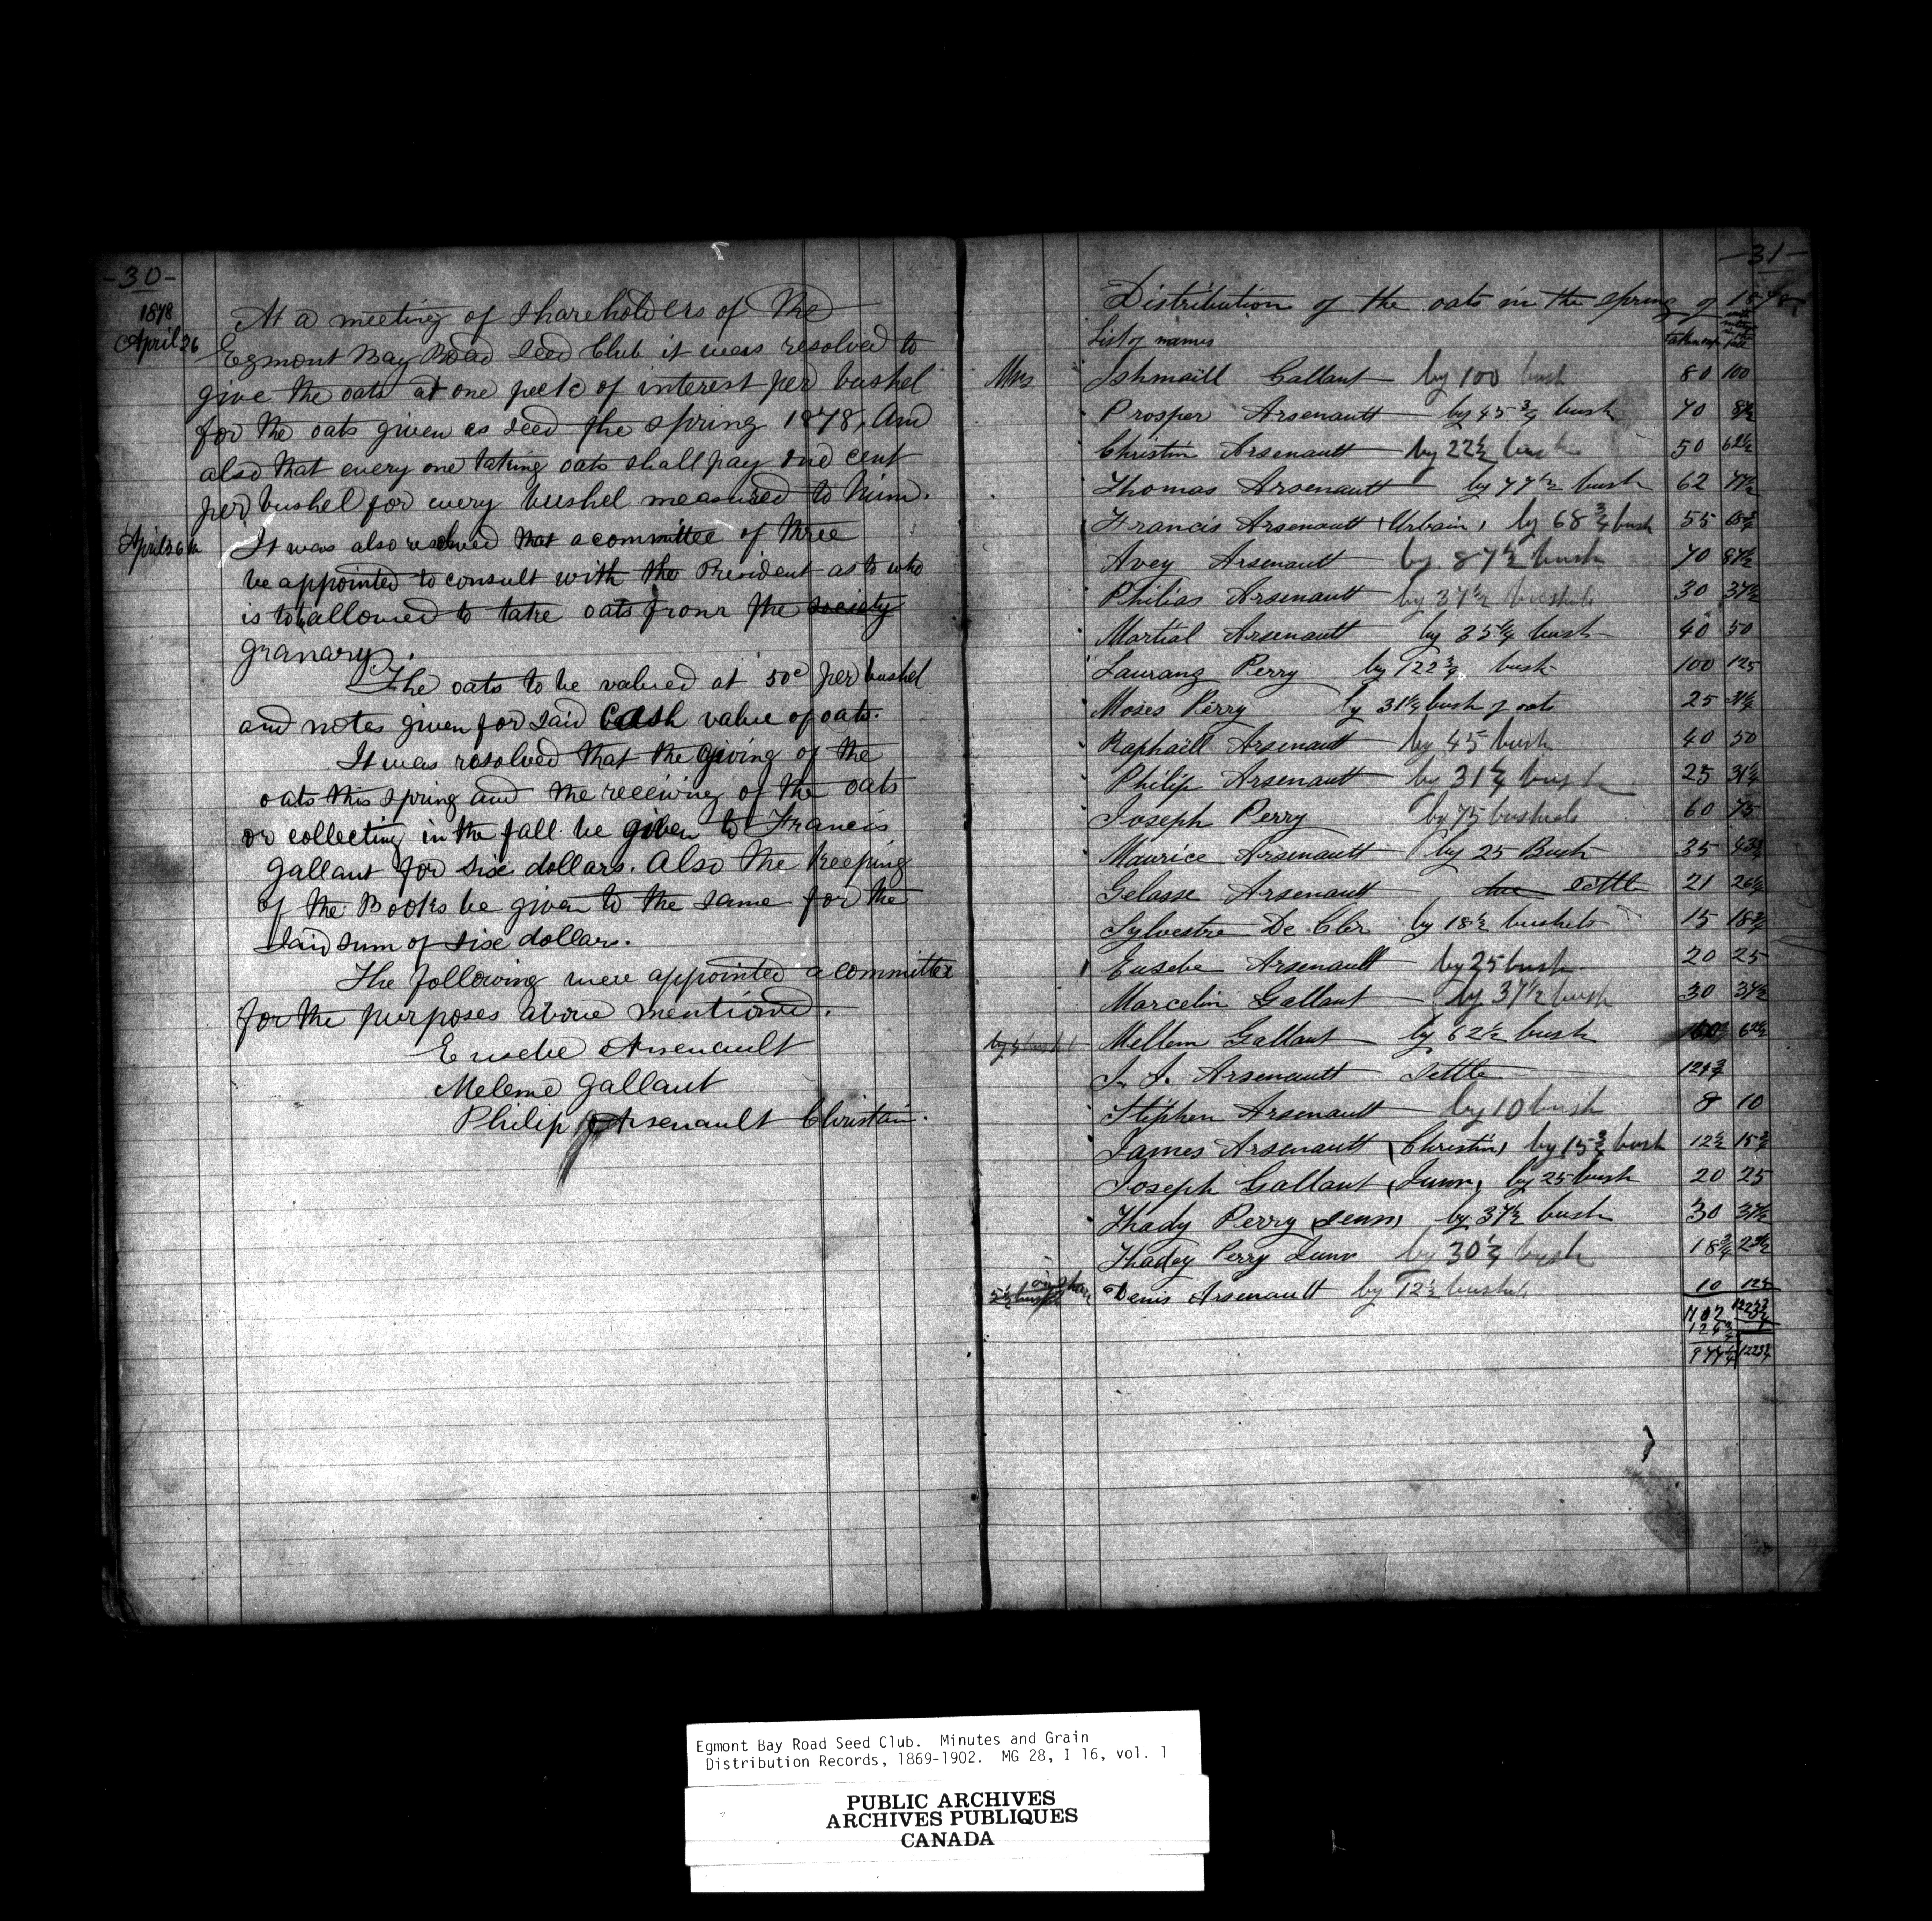 -30-
1878
April 26
At a meeting of shareholders of the
Egmont Bay Road Seed Club it was resolved to
give the oats at one peck of interest per bushel
for the oats given as seed the spring 1878, and
also that every one taking oats shall pay one cent
per bushel for every bushel measured to him.
April 26th
It was also resolved that a committee of three
be appointed to consult with the President as to who
is to be allowed to take oats from the society
granary.
The oats to be valued at 50c per bushel
and notes given for said cash value of oats.
It was resolved that the giving of the
oats this spring and the receiving of the oats
or collecting in the fall be given to Francis
Gallant for six dollars. Also the keeping
of the Books be given to the same for the
said sum of six dollars.
The following were appointed a committee
for the purposes above mentioned.
Eusebe Arsenault
Meleme Gallant
Philip Arsenault Christain.
-31-
Distribution of the oats in the spring of 1878
List of names
Mrs Ishmaill Gallant by 100 bush 80 100
Prosper Arsenault by 45 3/4 bush 70 87 1/2
Christin Arsenault by 22 1/2 bush 50 62 1/2
Thomas Arsenault by 77 1/2 bush 62 77 1/2
Francis Arsenault (Urbain) by 68 3/4 bush 55 68 3/4
Avey Arsenault by 87 1/2 bush 70 87 1/2
Philias Arsenault by 37 1/2 bushels 30 37 1/2
Martial Arsenault by 35 1/4 bush 40 50
Laurang Perry by 122 3/4 bush 100 125
Moses Perry by 31 1/4 bush of oats 25 31 1/4
Raphaill Arsenault by 45 bush 40 50
Philip Arsenault by 31 1/4 bush 25 31 1/4
Joseph Perry by 75 bushels 60 75
Maurice Arsenault by 25 Bush 35 43 3/4
Gelasse Arsenault due settle 21 26 1/4
Sylvestre De Cler by 18 1/2 bushels 15 18 3/4
Eusebe Arsenault by 25 bush 20 25
Marcelin Gallant by 37 1/2 bush 30 37 1/2
Mellem Gallant by 62 1/2 bush 62 1/2
J. J. Arsenault settle 124 3/4
Stephen Arsenault by 10 bush 8 10
James Arsenault (Christin) by 15 3/4 bush 12 1/2 15 3/4
Joseph Gallant (Junr) by 25 bush 20 25
Thady Perry (senr) by 37 1/2 bush 30 37 1/2
Thadey Perry Junr by 30 1/4 bush 18 3/4
Denis Arsenault by 12 1/2 bushels 10 12 1/2
977 1/4 1223 3/4
Egmont Bay Road Seed Club. Minutes and Grain
Distribution Records, 1869-1902. MG 28, I 16, vol. 1
PUBLIC ARCHIVES
ARCHIVES PUBLIQUES
CANADA